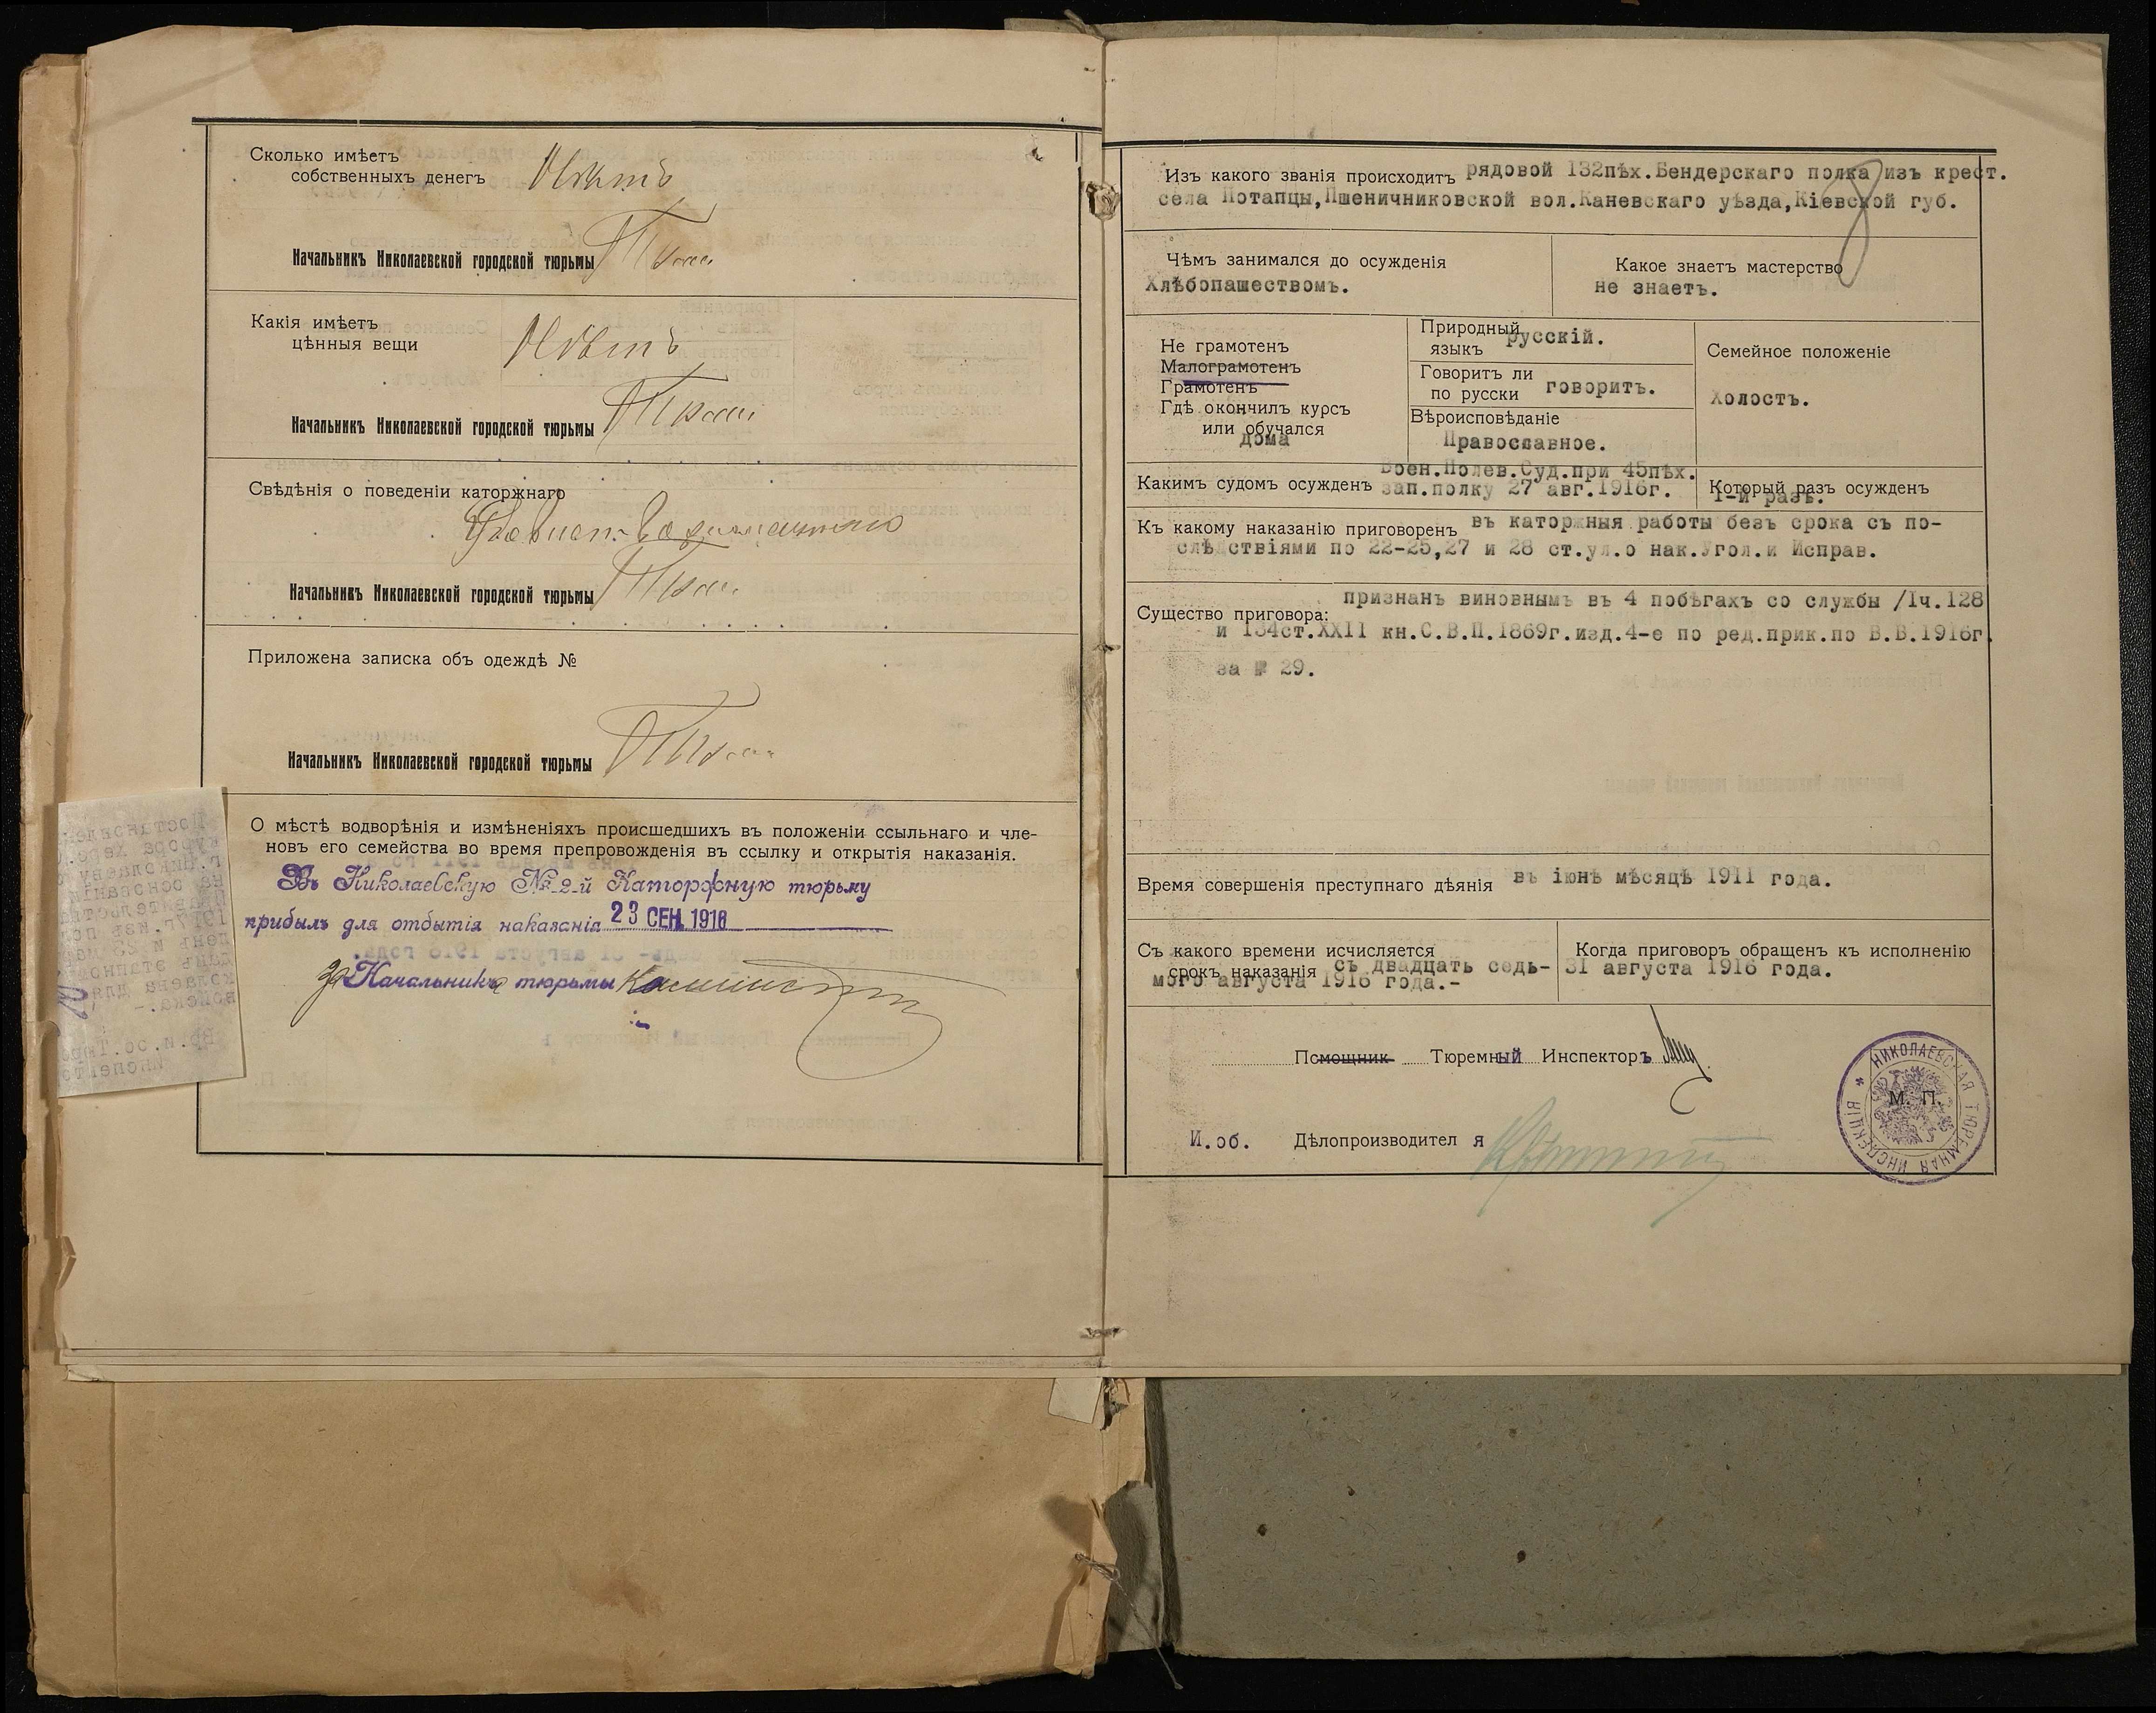 Сколько имѣетъ
собственныхъ денегъ
Нѣтъ
Начальникъ Николаевской городской тюрьмы
Какія имѣетъ
цѣнныя вещи
Нѣтъ
Начальникъ Николаевской городской тюрьмы
Свѣдѣнія о поведеніи каторжнаго
Начальникъ Николаевской городской тюрьмы
Приложена записка объ одеждѣ №
Начальникъ Николаевской городской тюрьмы
О мѣстѣ водворѣнія и измѣненіяхъ происшедшихъ въ положеніи ссыльнаго и чле-
новъ его семейства во время препровожденія въ ссылку и открытія наказанія.
Въ Николаевскую № 2-й Каторжную тюрьму
прибылъ для отбытія наказанія 23 СЕН. 1916
За Начальника тюрьмы
Изъ какого званія происходитъ рядовой 132пѣх.Бендерскаго полка изъ крест.
села Потапцы,Пшеничниковской вол.Каневскаго уѣзда,Кіевской губ.
Чѣмъ занимался до осужденія
Хлѣбопашествомъ.
Какое знаетъ мастерство
не знаетъ.
Не грамотенъ
Малограмотенъ
Грамотенъ
Гдѣ окончилъ курсъ
или обучался
дома
Природный
языкъ русскій.
Говоритъ ли
по русски говоритъ.
Вѣроисповѣданіе
Православное.
Семейное положеніе
Холостъ.
Какимъ судомъ осужденъ Воен.Полев.Суд.при 45пѣх.
зап.полку 27 авг.1916г.
Который разъ осужденъ
1-й разъ.
Къ какому наказанію приговоренъ въ каторжныя работы безъ срока съ по-
слѣдствіями по 22-25,27 и 28 ст.ул.о нак.Угол.и Исправ.
Существо приговора: признанъ виновнымъ въ 4 побѣгахъ со службы /Iч.128
и 134ст.XXII кн.С.В.П.1869г.изд.4-е по ред.прик.по В.В.1916г.
за № 29.
Время совершенія преступнаго дѣянія въ іюнѣ мѣсяцѣ 1911 года.
Съ какого времени исчисляется
срокъ наказанія съ двадцать седь-
мого августа 1916 года.-
Когда приговоръ обращенъ къ исполненію
31 августа 1916 года.
Помощник Тюремный Инспекторъ
И.об. Дѣлопроизводител я
М. П.
НИКОЛАЕВСКАЯ ТЮРЕМНАЯ ИНСПЕКЦІЯ